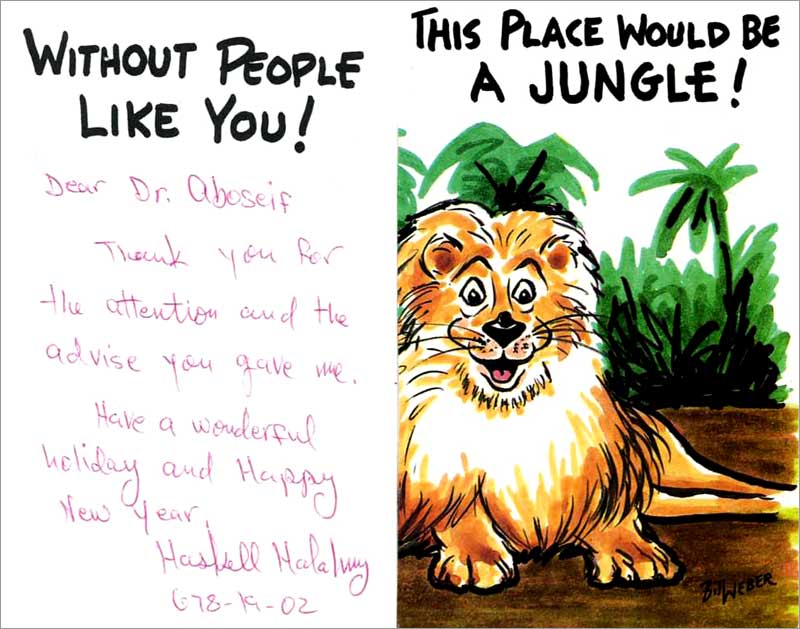 WITHOUT PEOPLE
LIKE YOU!
Dear Dr. Aboseif
Thank you for
the attention and the
advise you gave me.
Have a wonderful
holiday and Happy
New Year.
Haskell
678-19-02
THIS PLACE WOULD BE
A JUNGLE!
Bill WEBER